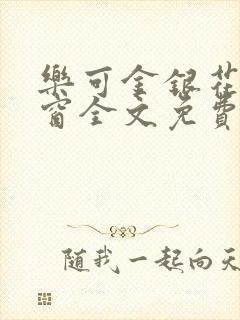 樂可金銀花
窗全文免費
随我一起向天